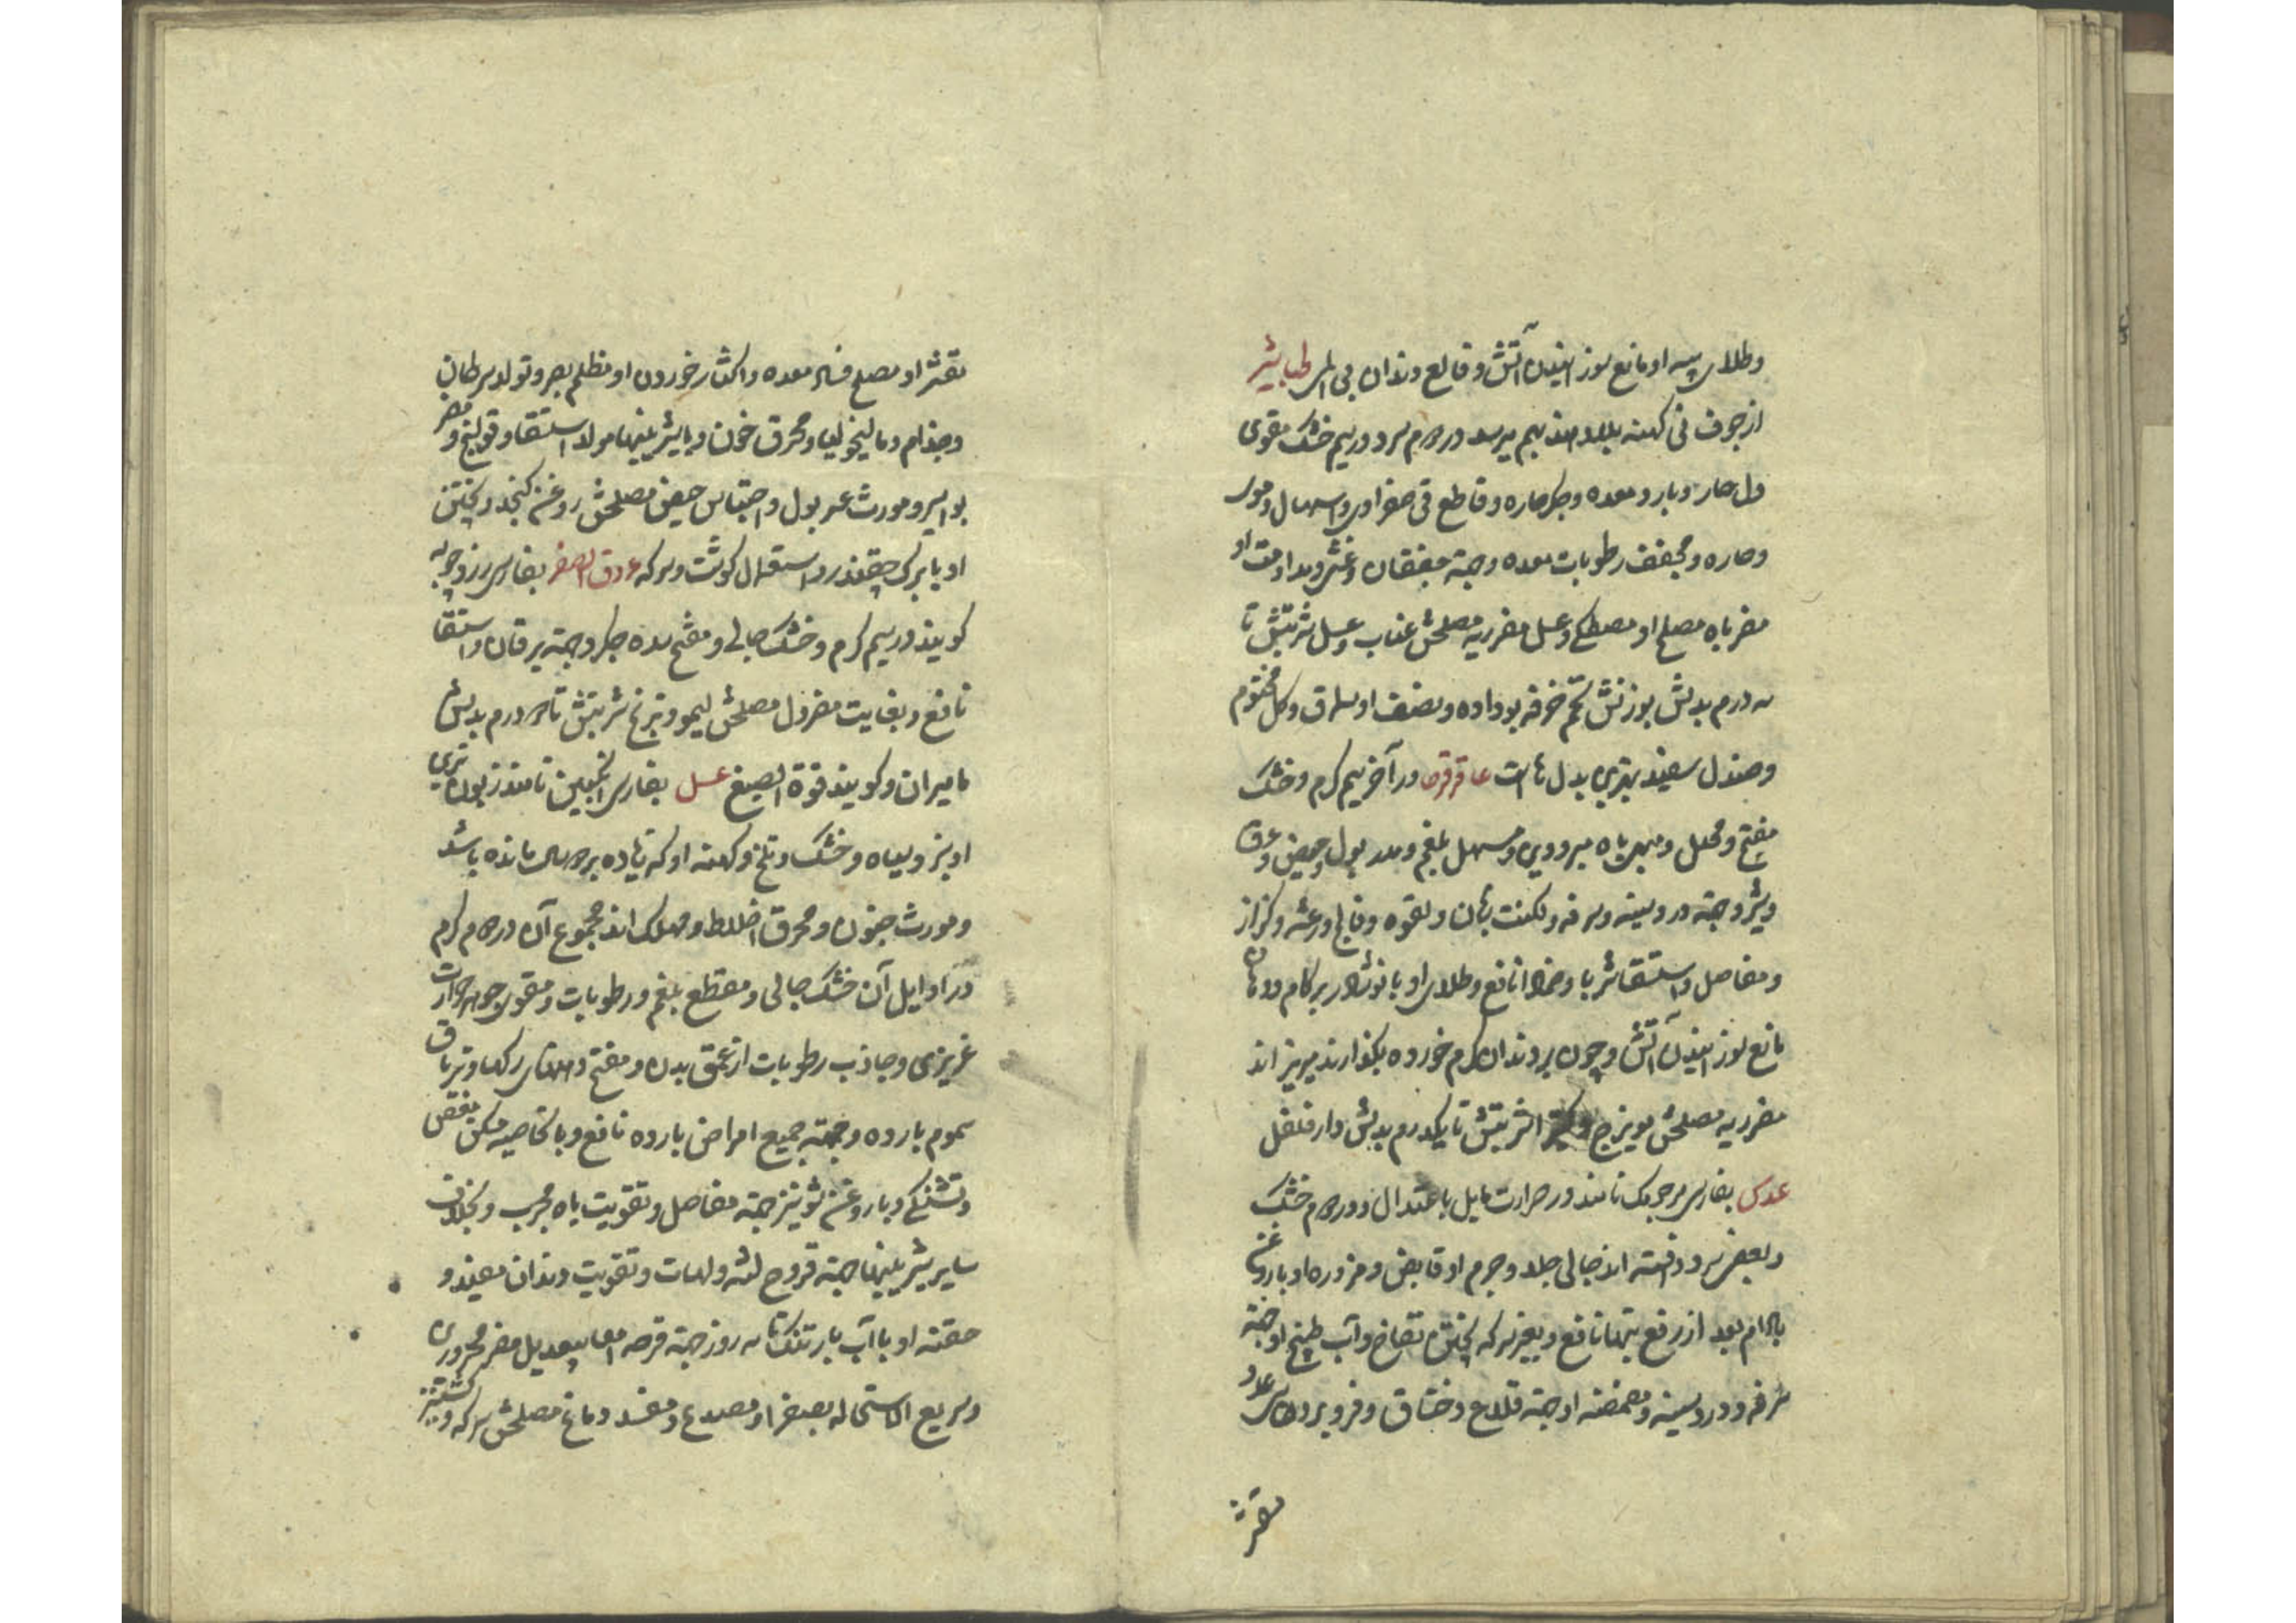 وطلای پیه او مانع سوزانیدن آتش و قالع دندان بی الم طباشیر
از جوف نی کهنه بلاد هند بهم میرسد در دوم سرد و در سیم خشک مقوی
دل حار و بارد و معده و جکر حاره و قاطع قی صفراوی و اسهال دموی
وحاره و مجفف رطوبات معده وجهة خفقان و غشی و مداومت او
مضر باه مصلح او مصطکی و عسل مضر ریه مصلحش عناب و عسل شربتش تا
سه درم بدلش بوزنش تخم خرفه بو داده و نصف او سماق و کل مختوم
وصندل سفید بهترین بدل هاست عاقرقرحا در آخر سیم کرم و خشک
مفتح و محلل و مبهی باه مبرودین و مسهل بلغم و مدر بول و حیض و عرق
وشیر وجهة درد سینه و سرفه و لکنت زبان و لقوه و فالج و رعشه و کزاز
ومفاصل و استسقا شربا و ضمادا نافع و طلای او با نوشادر بر کام و دهان
مانع سوزانیدن آتش و چون بر دندان کرم خورده بکذارند میریزاند
مضر ریه مصلحش مویزج و کتیرا شربتش تا یکدرم بدلش دارفلفل
عدس بفارسی مرجمک نامند در حرارت مایل باعتدال و در دوم خشک
وبعضی سرد دانسته اند جالی جلد و جرم او قابض و مزوره او با روغن
بادام بعد از رفع تبها نافع و بغیر سرکه پختن نفاخ و آب طبیخ او جهة
سرفه و درد سینه و مضمضه او جهة قلاع و خناق و فرو بردن سی عدد
مقشر
مقشر او مصلح فساد معده و اکثار خوردن او مظلم بصر و تولد سرطان
وجذام و مالیخولیا و محرق خون و با شیرینیها مولد استسقا و قولنج و مضر
بواسیر و مورث عسر بول و احتباس حیض مصلحش روغن کنجد و پختن
او با برک چقندر و استعمال کوشت و سرکه عروق الصفر بفارسی زردچوبه
کویند در سیم کرم و خشک جالی و مفتح سده جکر وجهة یرقان و استسقا
نافع و بغایت مضر دل مصلحش لیمو و ترنج شربتش تا دو درم بدلش
مامیران و کویند فوة الصبغ عسل بفارسی انکبین نامند زبون ترین
او سبز و سیاه و خشک و تلخ و کهنه او که زیاده بر دو سال مانده باشد
ومورث جنون و محرق اخلاط و مهلک اند مجموع آن در دوم کرم
در اوایل آن خشک جالی و مقطع بلغم و رطوبات و مقوی جوهر حرارت
غریزی و جاذب رطوبات از عمق بدن و مفتح دهنهای رکها و تریاق
سموم بارده وجهة جمیع امراض بارده نافع و بالخاصیه مسکن مغص
وتشنکی و با روغن شونیز جهة مفاصل و تقویت باه مجرب و بخلاف
سایر شیرینیها جهة قروح لثه و لهات و تقویت دندان مفید و
حقنه او با آب بارتنک تا سه روز جهة قرحه امعا بیعدیل مضر محرورین
وسریع الاستحاله بصفرا و مصدع و مفسد دماغ مصلحش سرکه و کشنیز